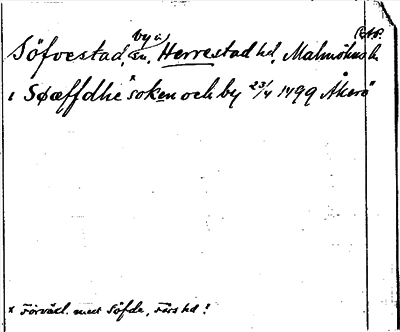 by i RAP.
Söfvestad, sn, Herrestad hd, Malmöhus l.
i Søæffdhe* soken och by 23/4 1499 Åkerö
* Förväxl. med Söfde, Färs hd!